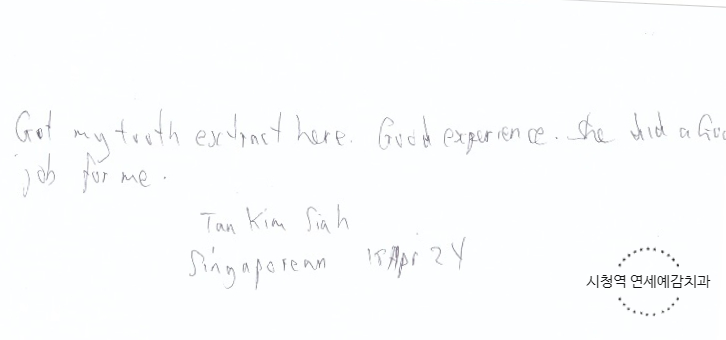 Got my tooth extract here. Good experience. She did a Goo
job for me.
Tan Kim Siah
Singaporean 15 Apr 24
시청역 연세예감치과